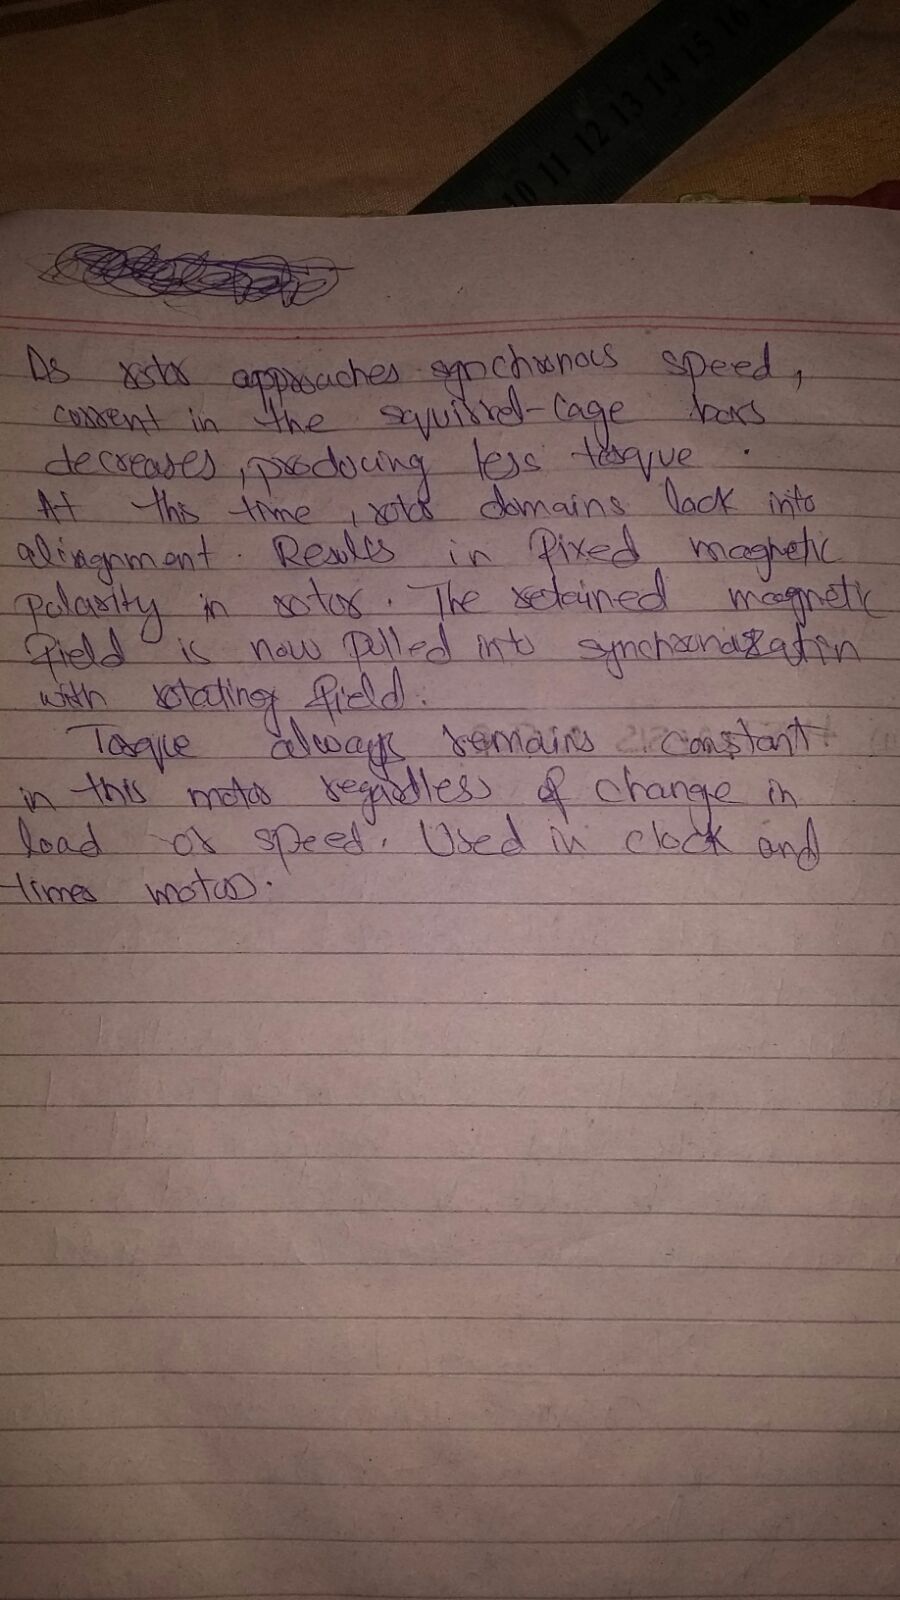 10 11 12 13 14 15 16
As rotor approaches synchronous speed,
current in the squirrel-cage bars
decreases, producing less torque.
At this time, rotor domains lock into
alinagnment. Results in fixed magnetic
polarity in rotor. The retained magnetic
field is now pulled into synchronization
with rotating field.
Torque always remains constant
in this motor regardless of change in
load or speed. Used in clock and
timer motors.